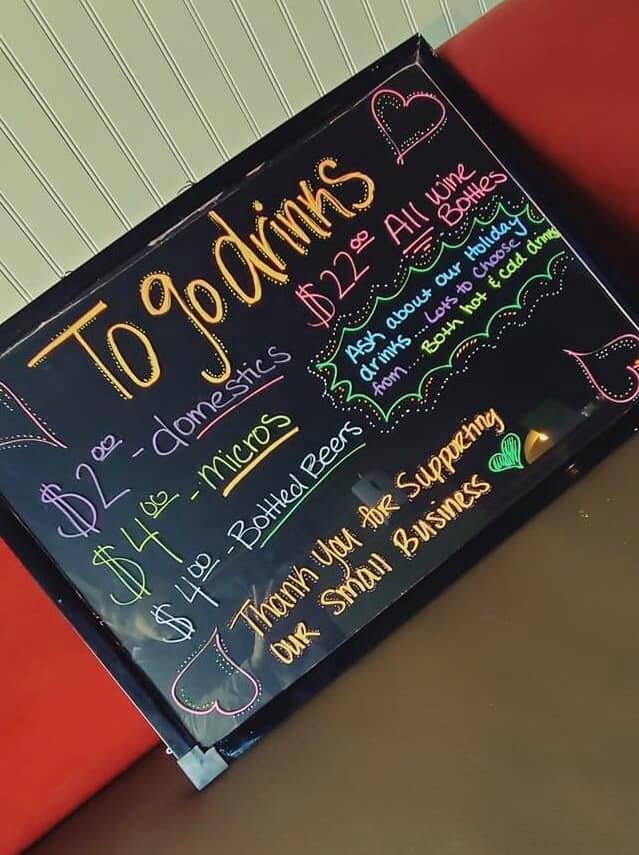 To go drinks
$2.00 - domestics
$4.00 - Micros
$4.00 - Bottled Beers
$22.00 All Wine
Bottles
Ask about our Holiday
drinks... Lots to choose
from Both hot & cold drinks
Thank you for Supporting
our Small Business